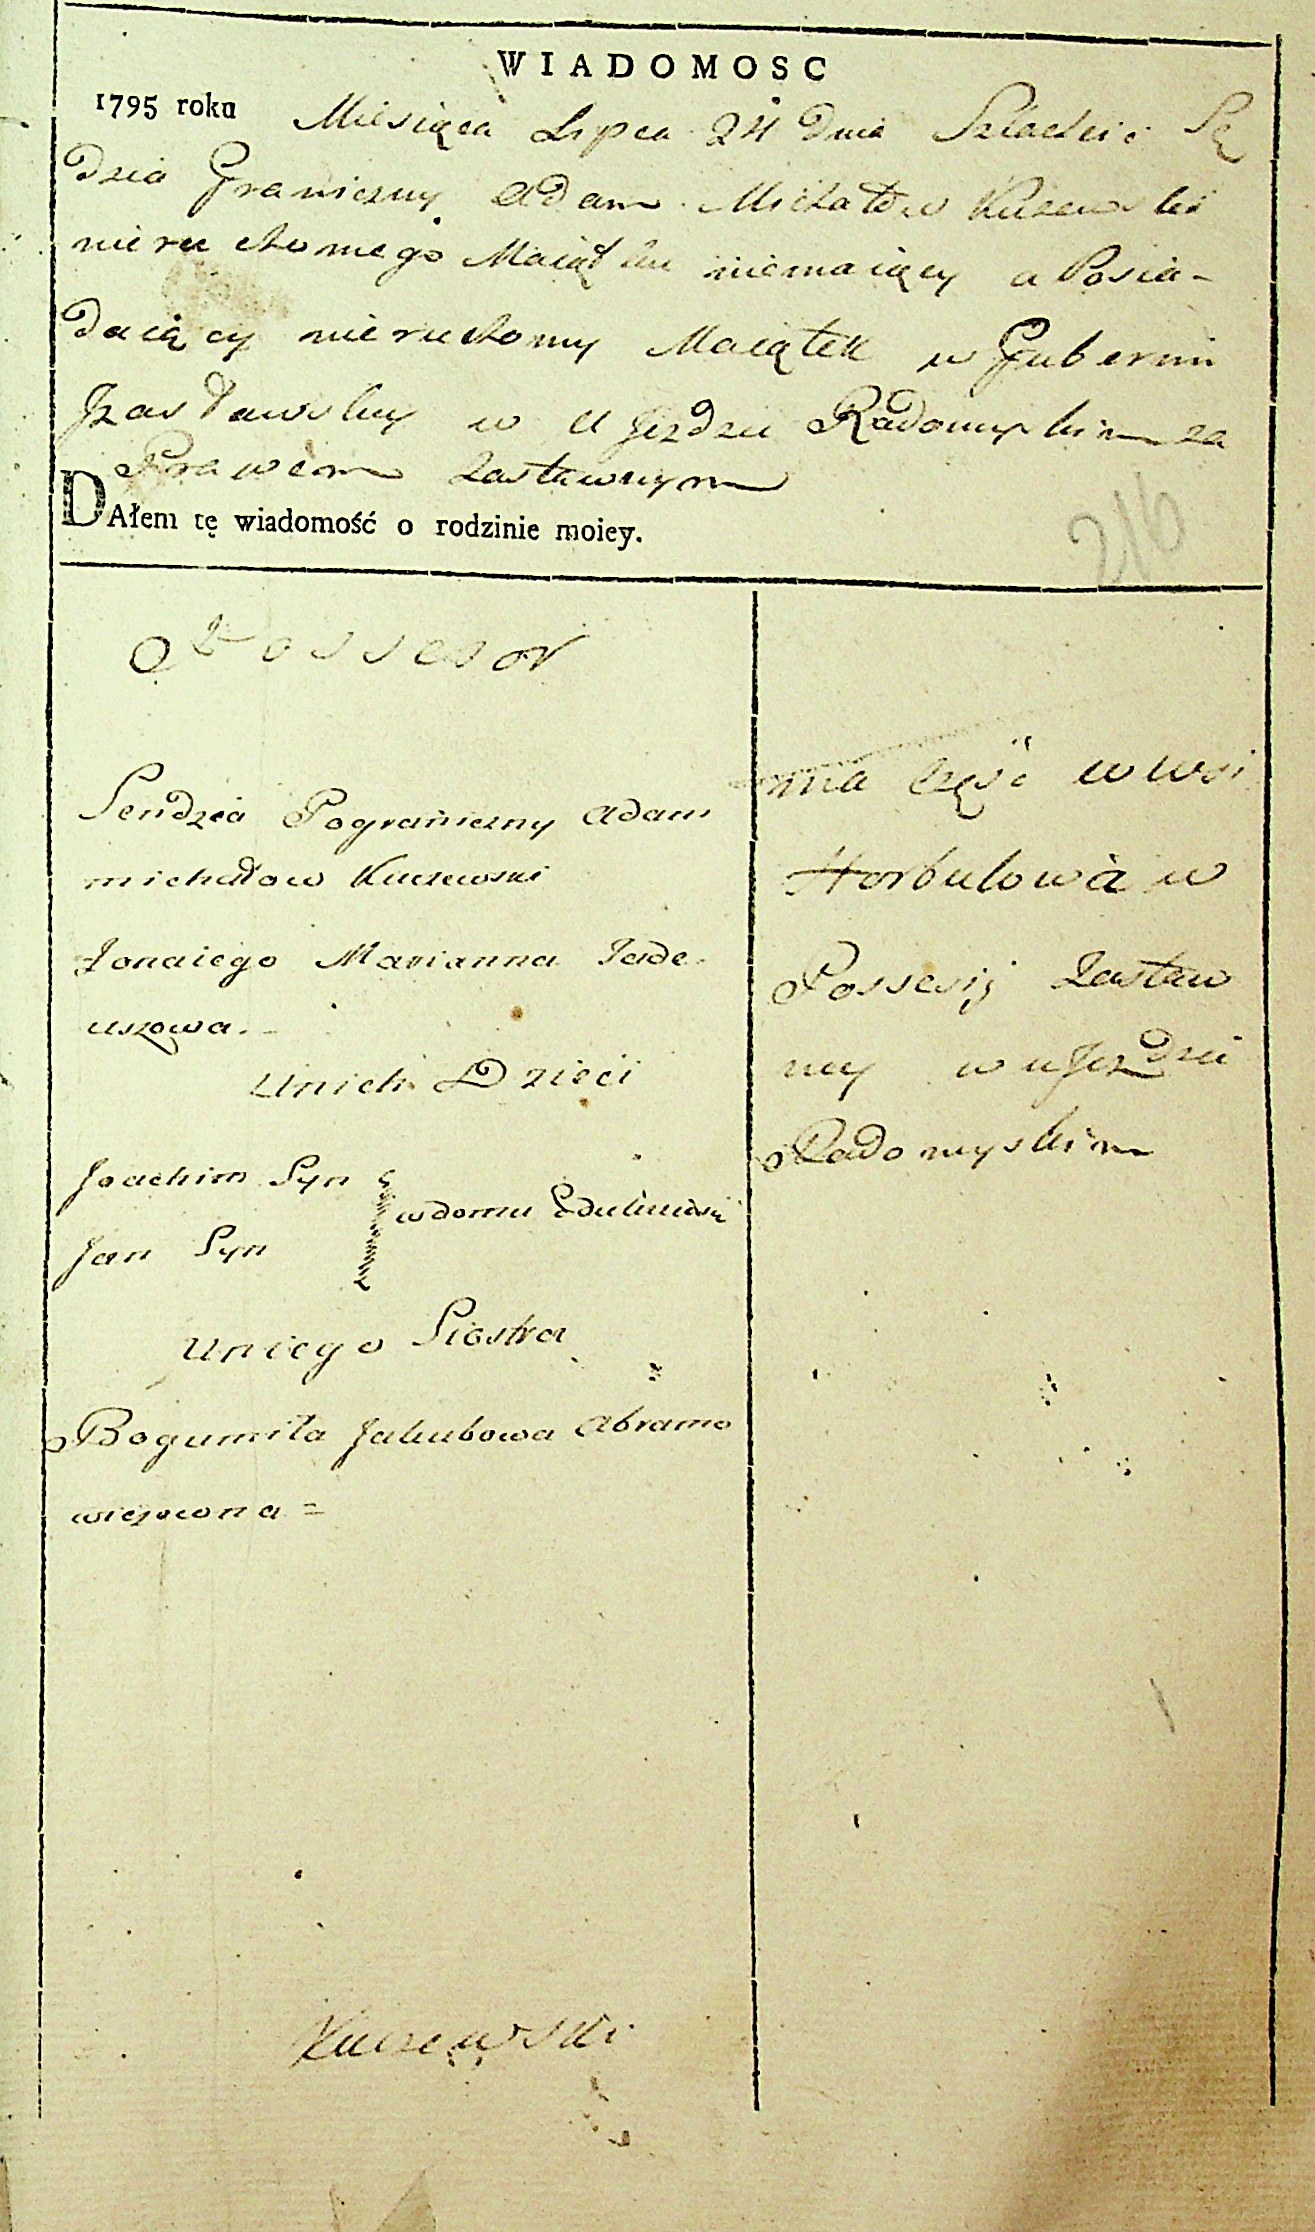 WIADOMOSC
1795 roku Miesiąca Lipca 24 Dnia Szlachcic Sę
dzia Graniczny Adam Michałow Kuczewski
nieruchomego Maiątku niemaiący a Posia-
daiący nieruchomy Maiątek w Gubernii
Jzasławskiy w UJezdzie Radomyskim za
Prawem Zastawnym
DAłem tę wiadomość o rodzinie moiey.
216
Possesor
Sendzia Pograniczny Adam
michałow Kuczewski
Żonaiego Marianna Tade-
uszowa.
Unich Dzieci
Joachim Syn
w domu
Jan Syn
Uniego Siostra
Bogumiła Jakubowa Abramo
wiczowona =
Kuczewski
ma część w wsi
Horbulowa w
Possesij Zastaw
ny w uJezdzie
Radomyskim